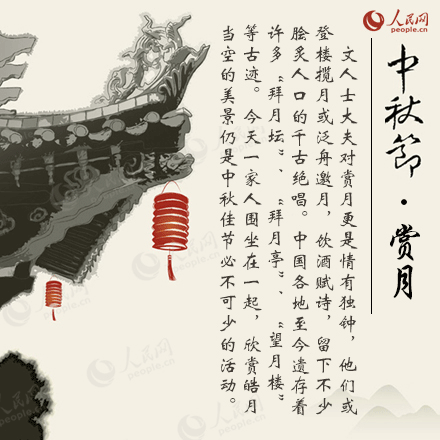 人民网
people.cn
中秋節·赏月
文人士大夫对赏月更是情有独钟，他们或
登楼揽月或泛舟邀月，饮酒赋诗，留下不少
脍炙人口的千古绝唱。中国各地至今遗存着
许多“拜月坛”、“拜月亭”、“望月楼”
等古迹。今天一家人围坐在一起，欣赏皓月
当空的美景仍是中秋佳节必不可少的活动。